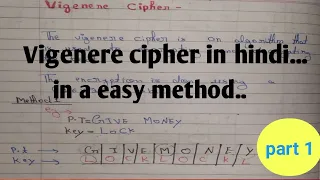 Vigenere Cipher -
The vigenere cipher is an algorithm that
Vigenere cipher in hindi...
The encryption is done using a
in a easy method..
Method
eg
P.T = GIVE MONEY
Key = LOCK
part 1
P.t → G I V E M O N E Y
Key → L O C K L O C K L